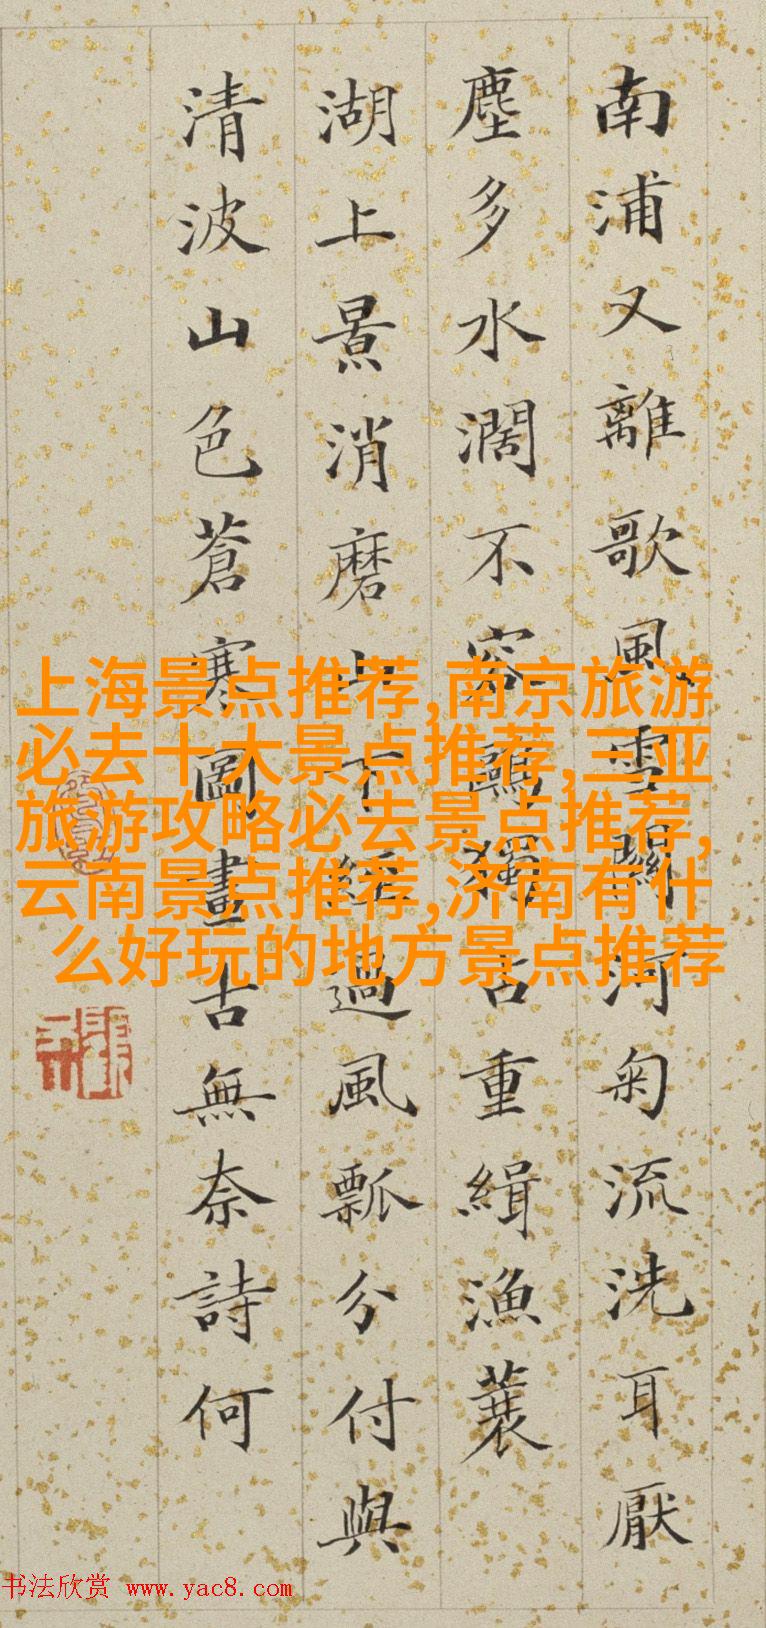 南浦又離歌風雪關河匊流洗耳厭
塵多水濶不容鷗獨古重緝漁蓑
湖上景消磨上下經過風瓢分付與
清波山色蒼寒圖畫古無奈詩何
上海景点推荐,南京旅游
必去十大景点推荐,三亚
旅游攻略必去景点推荐,
云南景点推荐,济南有什
么好玩的地方景点推荐
书法欣赏 www.yac8.com